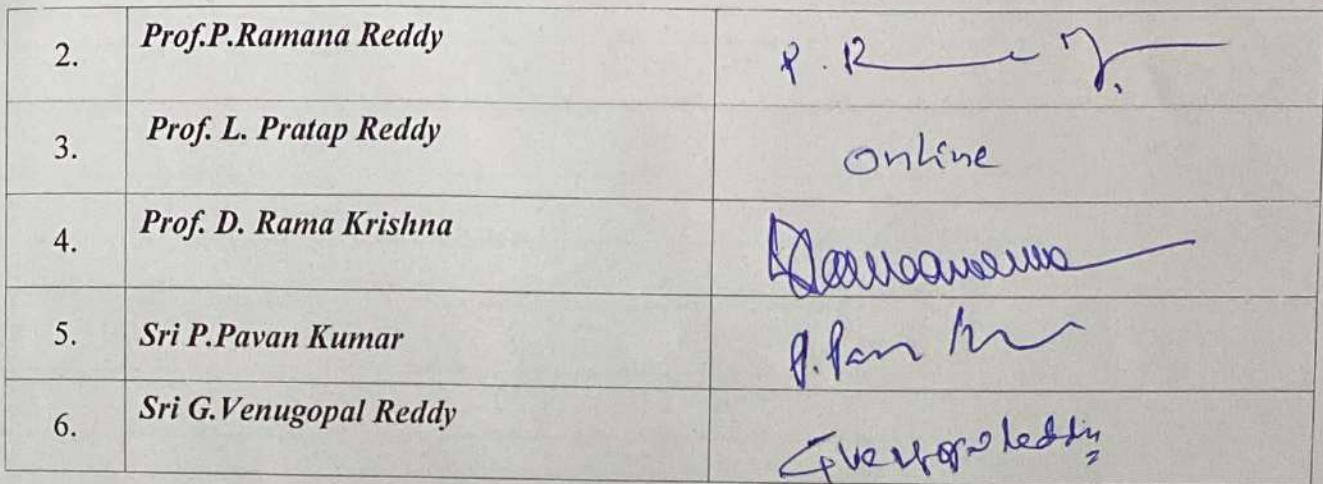 2. Prof.P.Ramana Reddy P. R
3. Prof. L. Pratap Reddy Online
4. Prof. D. Rama Krishna
5. Sri P.Pavan Kumar P. Pavan
6. Sri G.Venugopal Reddy GVenugopal Reddy